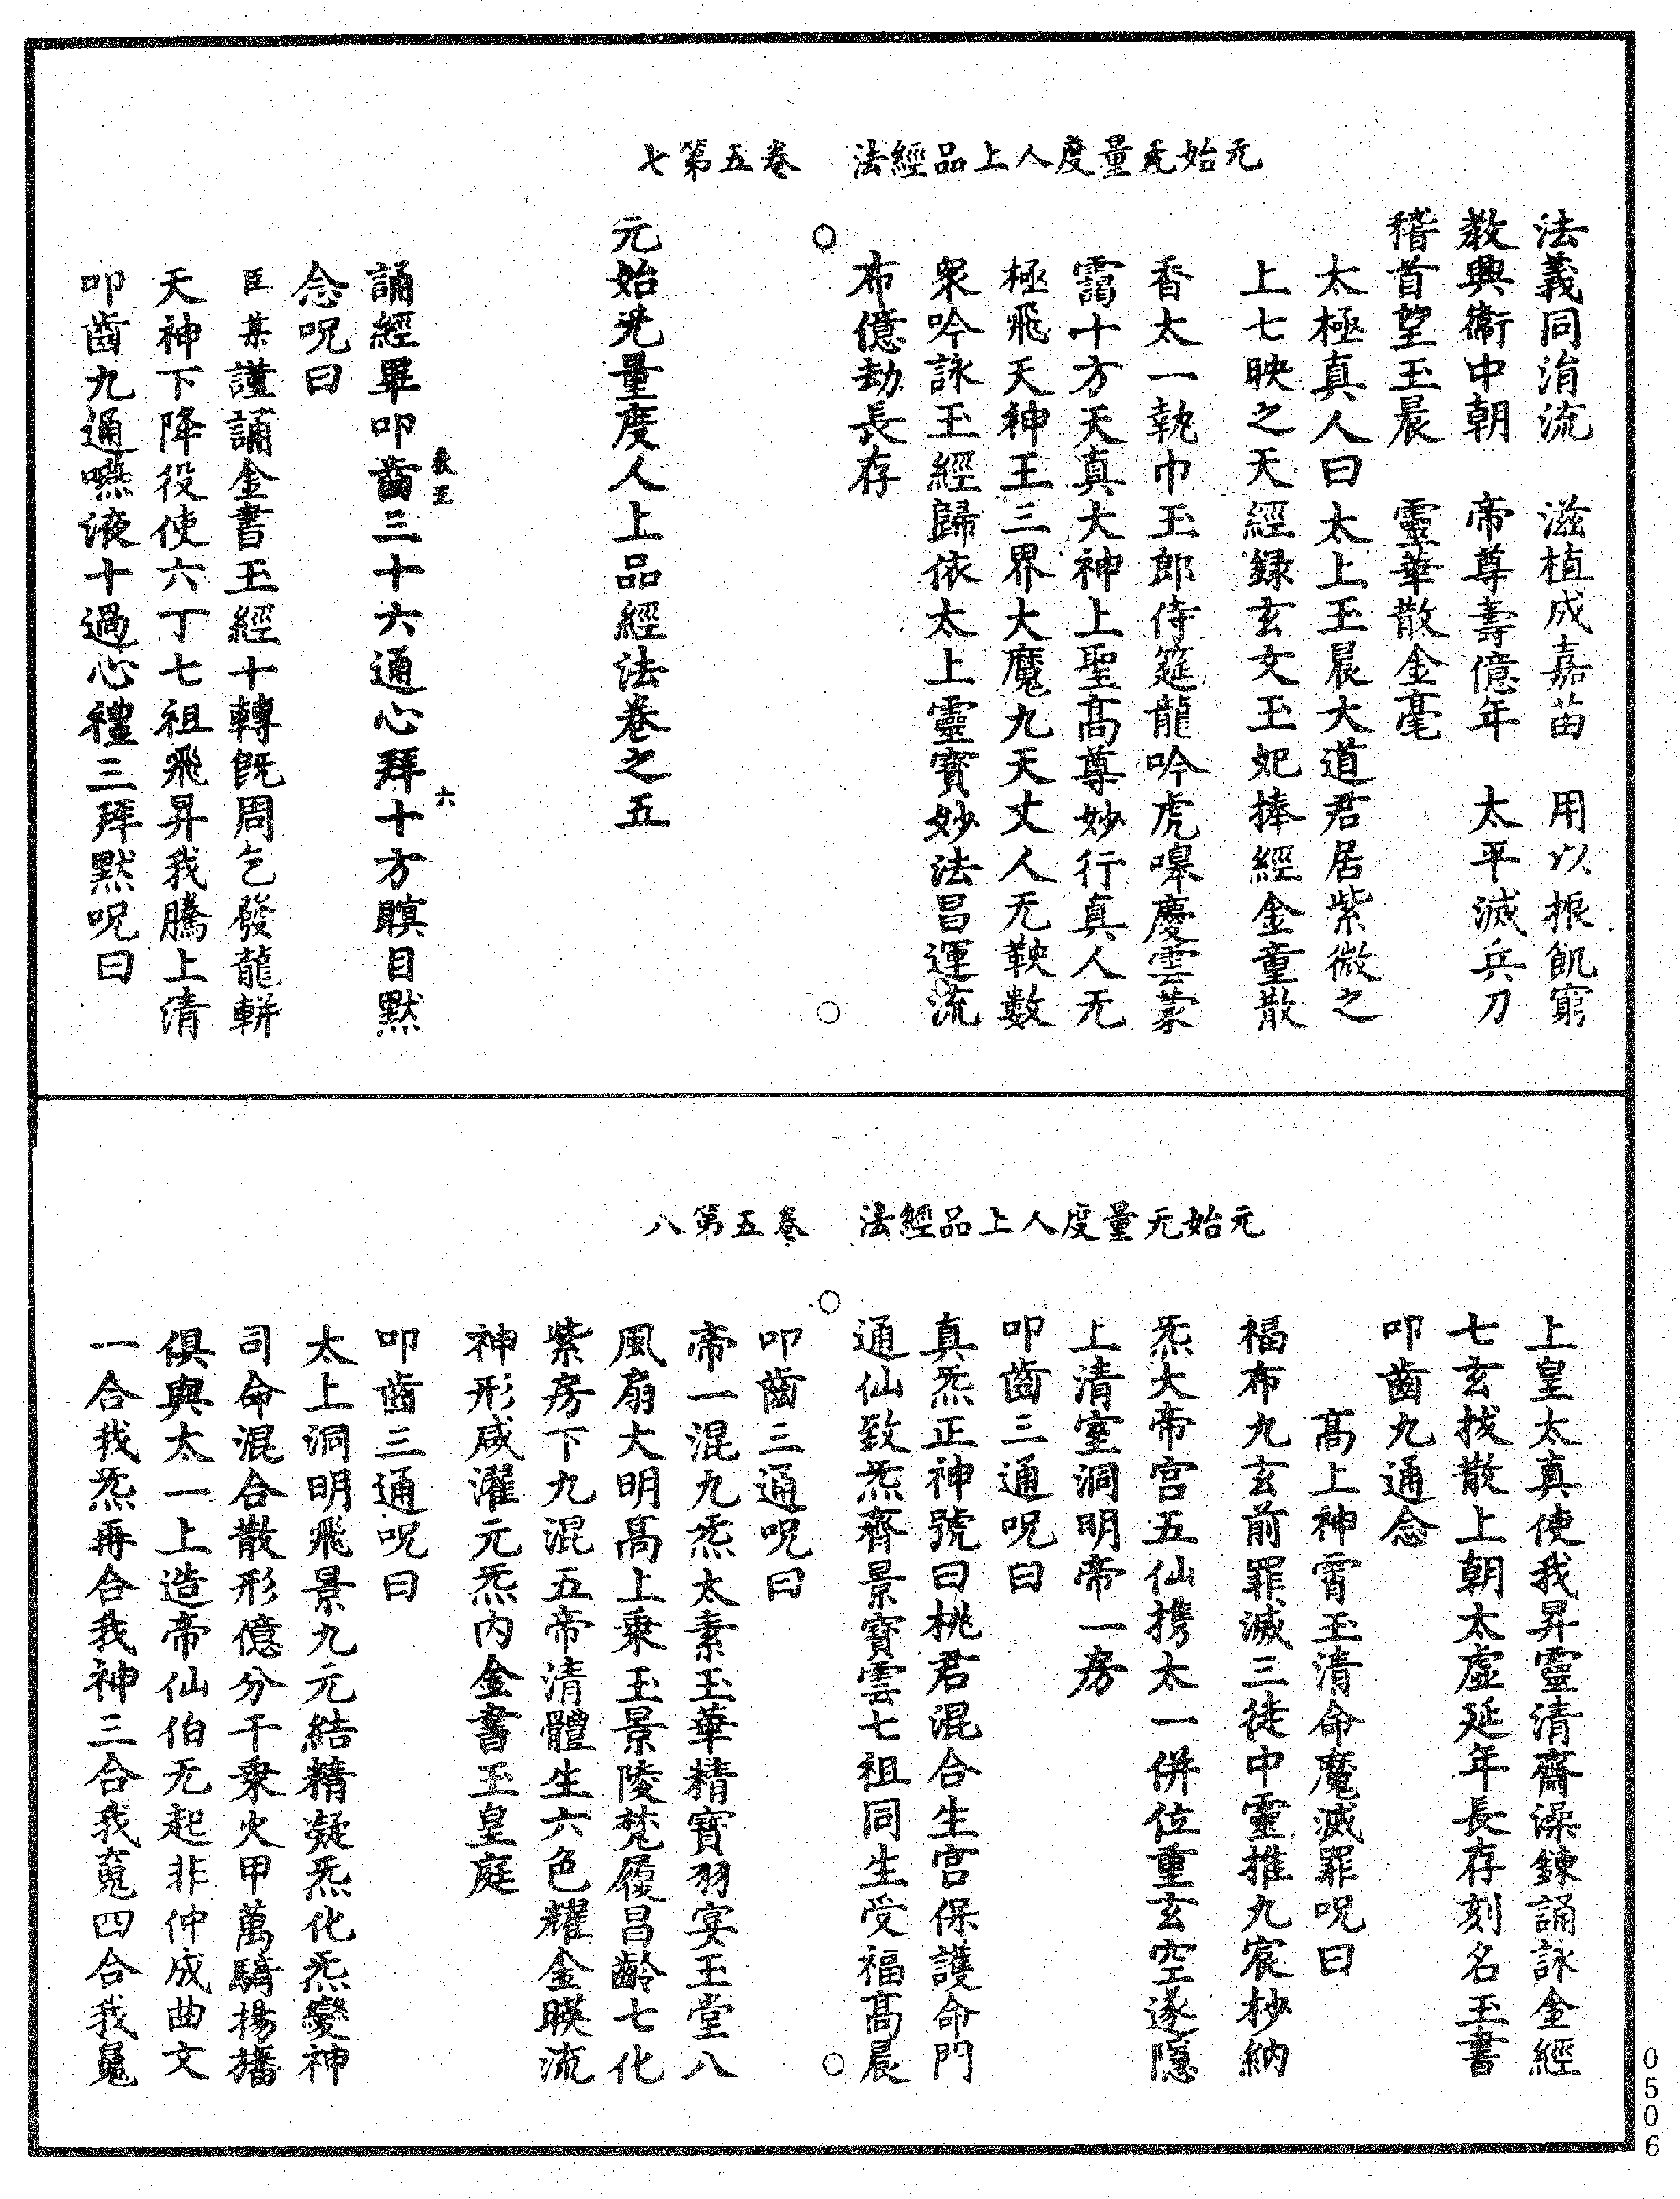 元始无量度人上品經法　卷五第七
法義同涓流　滋植成嘉苗　用以振飢窮
教興衛中朝　帝尊壽億年　太平滅兵刀
稽首望玉晨　靈華散金毫
太極真人曰太上玉晨大道君居紫微之
上七映之天經録玄文玉妃捧經金童散
香太一執巾玉郎侍筵龍吟虎嘷慶雲蒙
靄十方天真大神上聖高尊妙行真人无
極飛天神王三界大魔九天丈人无鞅數
衆吟詠玉經歸依太上靈寶妙法昌運流
布億劫長存
元始无量度人上品經法卷之五
誦經畢叩齒三十六通心拜十方瞑目默
念呪曰
臣某謹誦金書玉經十轉既周乞發龍軿
天神下降役使六丁七祖飛昇我騰上清
叩齒九通嚥液十過心禮三拜默呪曰
六
元始无量度人上品經法　卷五第八
上皇太真使我昇靈清齋澡鍊誦詠金經
七玄拔散上朝太虛延年長存刻名玉書
叩齒九通念
高上神霄玉清命魔滅罪呪曰
福布九玄前罪滅三徒中靈推九宸杪納
炁大帝宮五仙携太一併位重玄空遂隱
上清室洞明帝一房
叩齒三通呪曰
真炁正神號曰桃君混合生宮保護命門
通仙致炁齊景寶雲七祖同生受福高晨
叩齒三通呪曰
帝一混九炁太素玉華精寶羽宴玉堂八
風扇大明高上乘玉景陵梵履昌齡七化
紫房下九混五帝清體生六色耀金映流
神形咸濯元炁内金書玉皇庭
叩齒三通呪曰
太上洞明飛景九元結精凝炁化炁變神
司命混合散形億分千乘火甲萬騎揚旛
俱與太一上造帝仙伯无起非仲成曲文
一合我炁再合我神三合我䰟四合我魄
0506